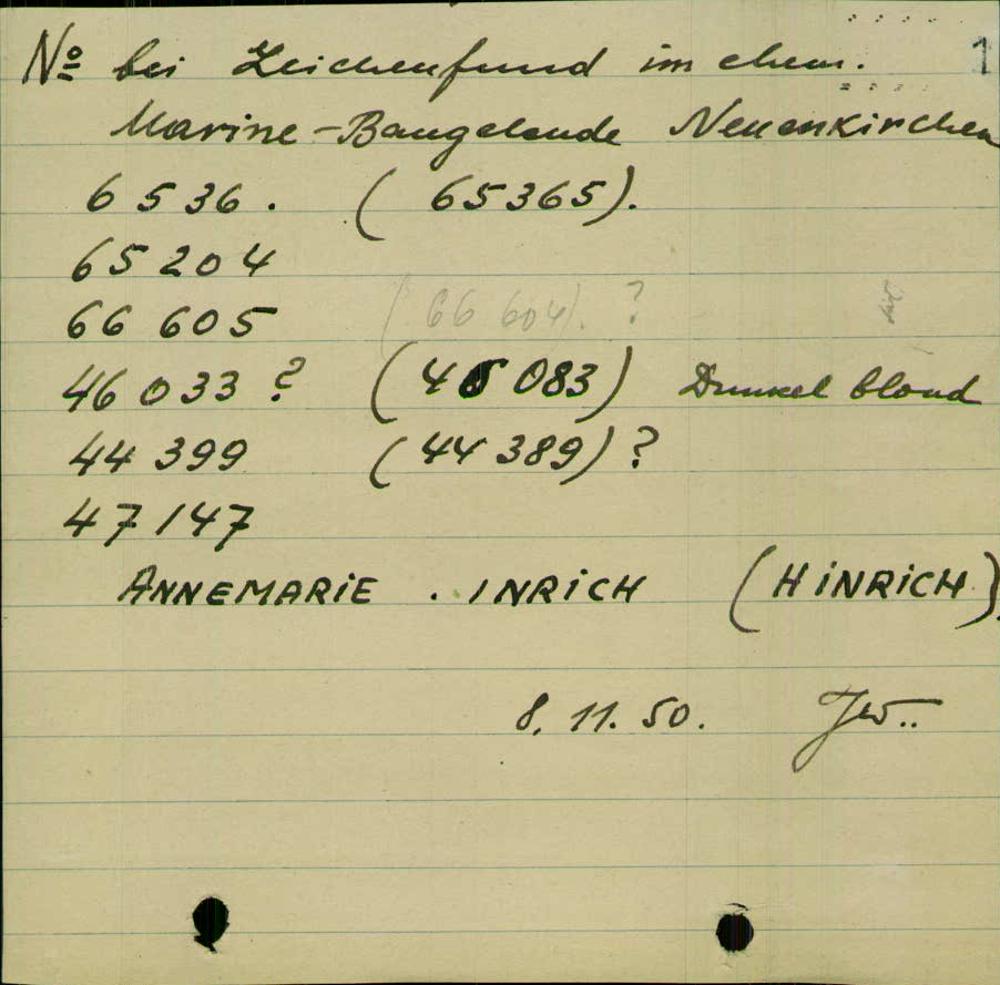 1
Nº bei Leichenfund im ehem.
Marine-Baugelände Neuenkirchen
6536. (65365).
65204
66 605 (66 604). ?
46 033 ? (46 083) Dunkel blond
44 399 (44 389) ?
47147
ANNEMARIE . INRICH (HINRICH).
8. 11. 50.